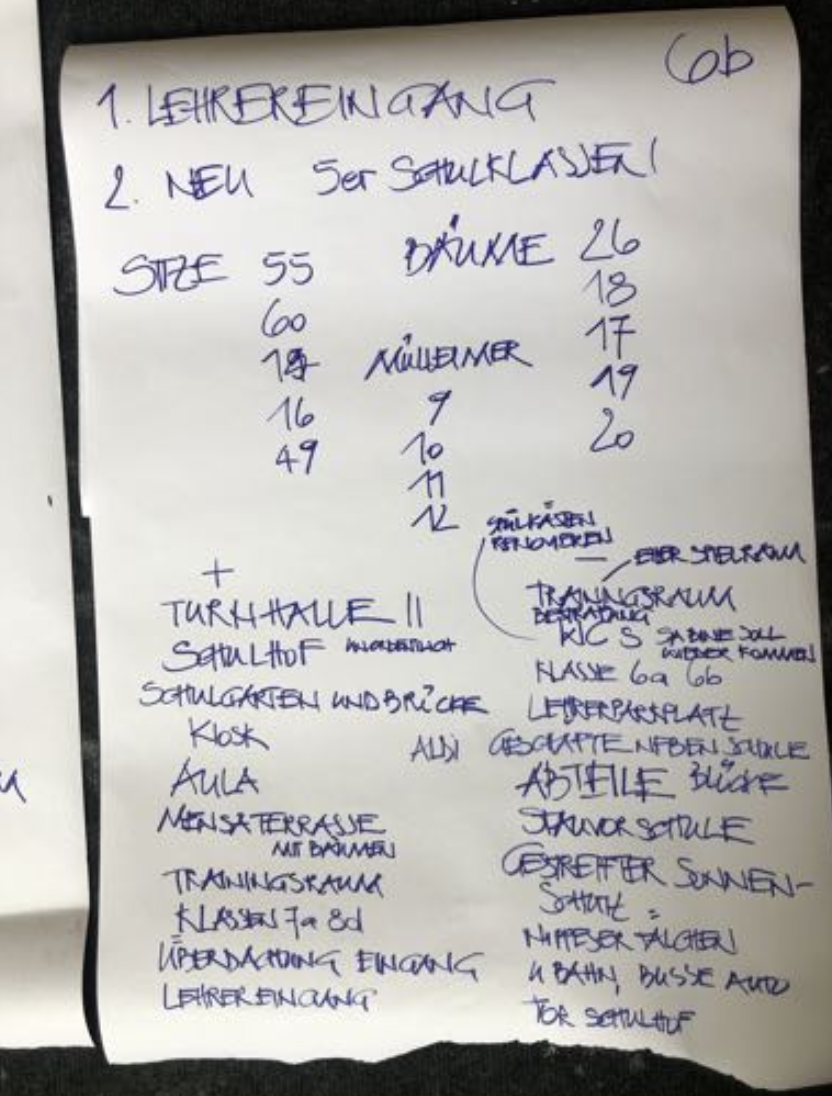 6b
1. LEHREREINGANG
2. NEU 5er SCHULKLASSEN!
SITZE 55
60
16
49
BÄUME 26
18
17
19
20
MÜLLEIMER
9
10
11
12
+
TURNHALLE II
SCHULHOF UNORDENTLICH
SCHULGARTEN UND BRÜCKE
KIOSK
AULA
MENSATERRASSE
MIT BÄUMEN
TRAININGSRAUM
KLASSEN 7a 8d
ÜBERDACHUNG EINGANG
LEHREREINGANG
RENOVIEREN
— EHER SPIELRAUM
TRAININGSRAUM
BERATUNG
SABINE SOLL
WIEDER KOMMEN
KLASSE 6a 6b
LEHRERPARKPLATZ
ALDI GESCHÄFTE NEBEN SCHULE
ABTEILE
STAU VOR SCHULE
GESTREIFTER SONNEN-
SCHUTZ
NIPPESER TÄLCHEN
U BAHN, BUSSE AUTO
TOR SCHULHOF
u